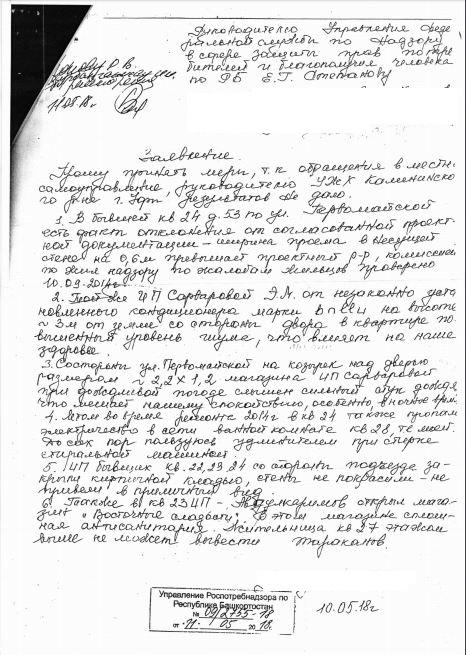 Руководителю Управления Феде
ральной службы по надзору
в сфере защиты прав потре
бителей и благополучия человека
по РБ Е.Г. Степанову
Р.В.
11.05.18г
Заявление.
Прошу принять меры, т.к. обращения в местн.
самоуправление, руководителю УЖХ Калининско
го р-на г. Уфы результатов не дало.
1. В бывшей кв 24 д. 53 по ул. Первомайской
есть факт отклонения от согласованной проект-
ной документации – ширина проема в несущей
стене на 0,6м превышает проектный р-р, комиссией
по жил надзору по жалобам жильцов проверено
10.09.2014г
2. Там же ИП Сарваровой Э.М. от незаконно уста
новленного кондиционера марки на высоте
~ 3м от земли со стороны двора в квартире по
вышенный уровень шума, что влияет на наше
здоровье.
3. Со стороны ул. Первомайской на козырек над дверью
размером ~ 2,2 х 1,2 магазина ИП Сарваровой
при дождливой погоде слышен сильный стук дождя,
что мешает нашему спокойствию, особенно, в ночное время.
4. Летом во время ремонта 2014г в кв 24 также пропало
электричество в сети ванной комнате кв 28, те мест.
До сих пор пользуюсь удлинителем при стирке
стиральной машиной.
5. ИП бывших кв. 22,23,24 со стороны подъезда за-
крыли кирпичной кладкой, стены не покрасили – не
привели в приличный вид
6. Также в кв 23 ИП – открыл мага-
зин „Восточные сладости". В этом магазине сплош-
ная антисанитария. Жительница кв 27 этажом
выше не может вывести тараканов.
Управление Роспотребнадзора по
Республике Башкортостан
№ 09/2755-18
от „11" 05 2018.
10.05.18г